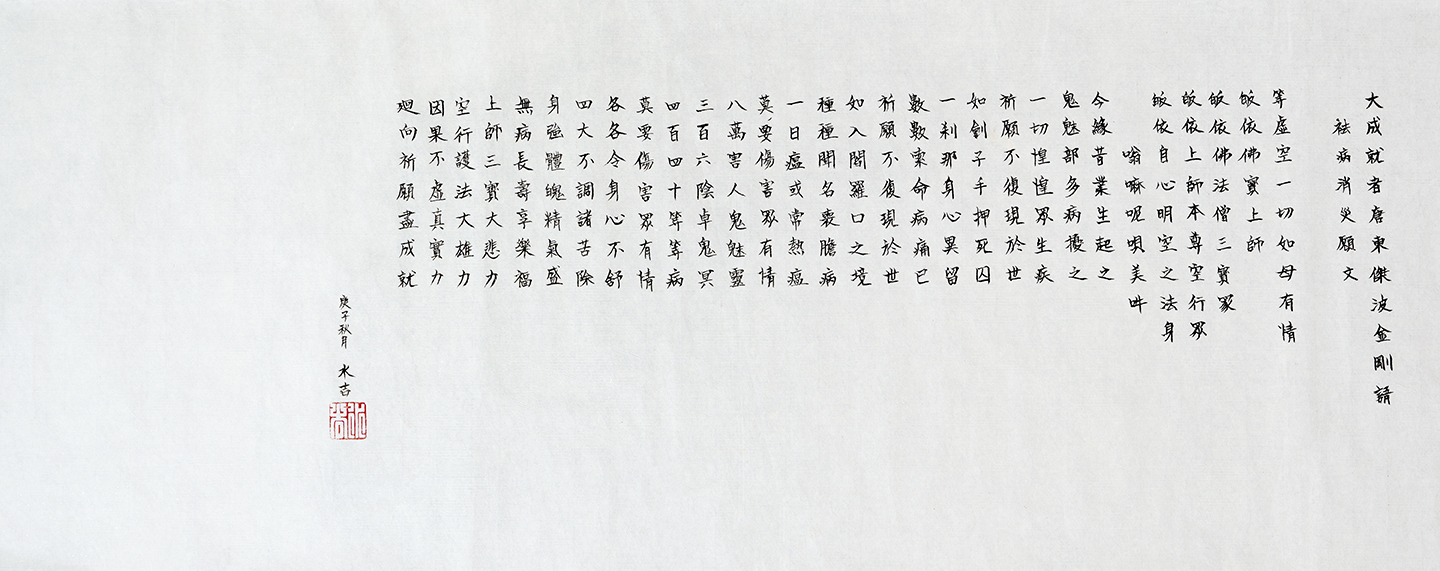 大成就者唐東傑波金剛請
祛病消災願文
等虛空一切如母有情
皈依佛寶上師
皈依佛法僧三寶眾
皈依上師本尊空行眾
皈依自心明空之法身
嗡嘛呢唄美吽
今緣昔業生起之
鬼魅部多病擾之
一切惶惶眾生疾
祈願不復現於世
如劊子手押死囚
一刹那身心異留
數數索命病痛已
祈願不復現於世
如入閻羅口之境
種種聞名喪膽病
一日瘟或常熱瘟
莫要傷害眾有情
八萬害人鬼魅靈
三百六陰卓鬼冥
四百四十等等病
莫要傷害眾有情
各各令身心不舒
四大不調諸苦除
身強體魄精氣盛
無病長壽享樂福
上師三寶大悲力
空行護法大雄力
因果不虛真實力
迴向祈願盡成就
庚子秋月 水吉